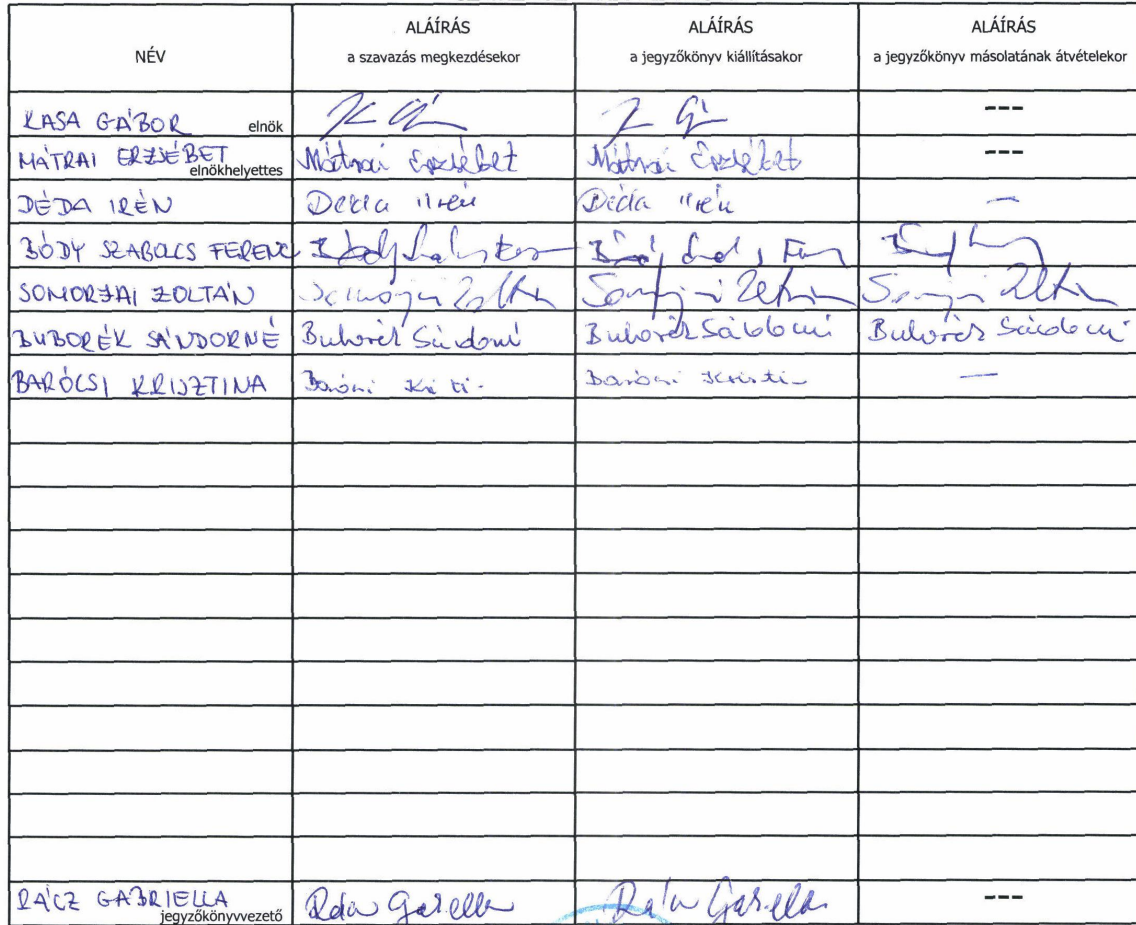 NÉV
ALÁÍRÁS
a szavazás megkezdésekor
ALÁÍRÁS
a jegyzőkönyv kiállításakor
ALÁÍRÁS
a jegyzőkönyv másolatának átvételekor
KASA GÁBOR elnök ---
MÁTRAI ERZSÉBET elnökhelyettes Mátrai Erzsébet Mátrai Erzsébet ---
DÉDA IRÉN Déda Irén Déda Irén —
BÓDY SZABOLCS FERENC
SOMORJAI ZOLTÁN Somorjai Zoltán Somorjai Zoltán Somorjai Zoltán
BUBORÉK SÁNDORNÉ Buborék Sándorné Buborék Sándorné Buborék Sándorné
BARÓCSI KRISZTINA Barócsi Barócsi —
RÁCZ GABRIELLA jegyzőkönyvvezető Rácz Gabriella Rácz Gabriella ---